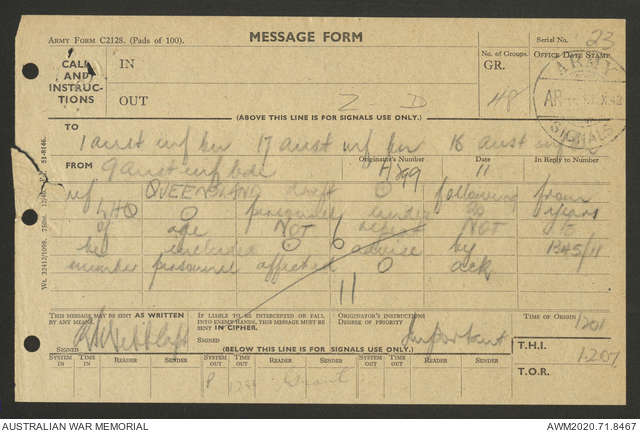 ARMY FORM C2128. (Pads of 100).
MESSAGE FORM
Serial No. 23
CALL AND INSTRUCTIONS
IN
OUT
Z - D
No. of Groups.
GR.
48
OFFICE DATE STAMP
ARMY
SIGNALS
(ABOVE THIS LINE IS FOR SIGNALS USE ONLY.)
TO
1 aust inf bn 17 aust inf bn 16 aust inf
FROM
9 aust inf bde
Originator's Number
A299
Date
11
In Reply to Number
ref QUEENSLAND draft O following from
LHQ O personnel under 20 years
of age NOT NOT to
be included O advise by 1345/11
number personnel affected O ack
11
THIS MESSAGE MAY BE SENT AS WRITTEN BY ANY MEANS.
SIGNED
IF LIABLE TO BE INTERCEPTED OR FALL INTO ENEMY HANDS, THIS MESSAGE MUST BE SENT IN CIPHER.
SIGNED
ORIGINATOR'S INSTRUCTIONS DEGREE OF PRIORITY
Important
TIME OF ORIGIN
1201
(BELOW THIS LINE IS FOR SIGNALS USE ONLY.)
T.H.I. 1207
T.O.R.
SYSTEM IN TIME IN READER SENDER SYSTEM OUT TIME OUT READER SENDER SYSTEM OUT TIME OUT READER SENDER
P
AUSTRALIAN WAR MEMORIAL
AWM2020.71.8467